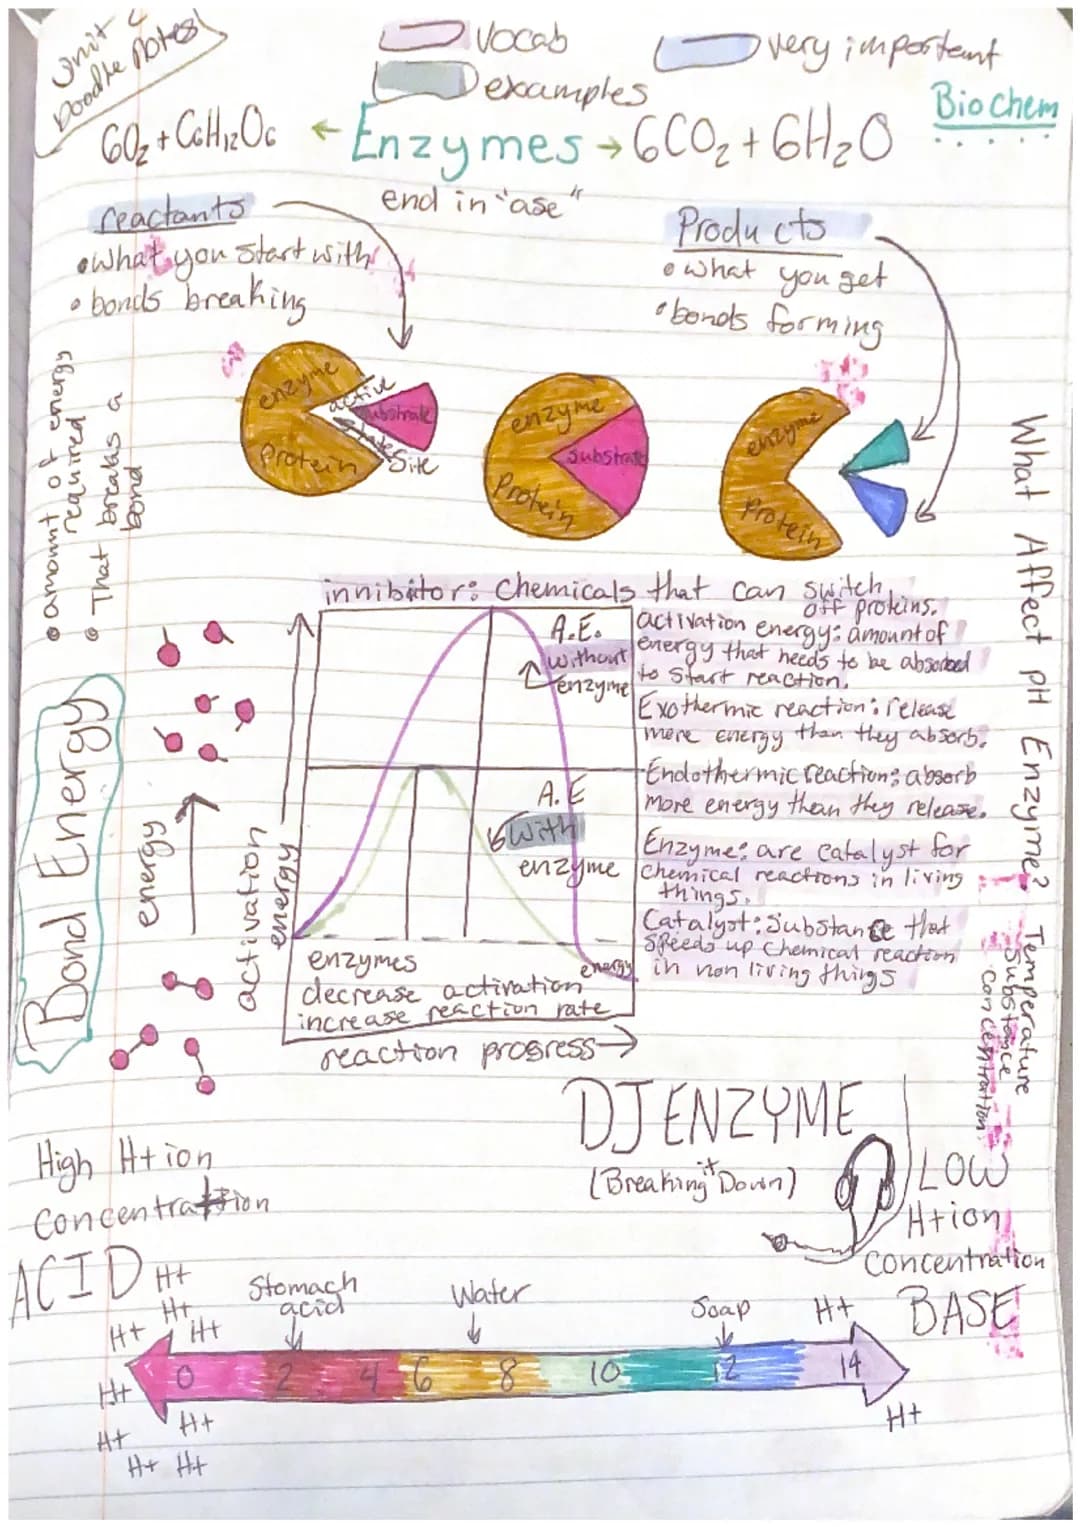 Unit 2
Doodle Notes
vocab
very important
examples
Biochem
6O2 + C6H12O6 ← Enzymes → 6CO2 + 6H2O
end in "ase"
reactants
• what you start with
• bonds breaking
Products
• what you get
• bonds forming
enzyme
Protein
active
Substrate
Site
enzyme
Substrate
Protein
enzyme
Protein
• amount of energy
required
• That breaks a
bond
Bond Energy
energy
innibitor: Chemicals that can switch
off proteins.
activation energy: amount of
energy that needs to be absorbed
to start reaction.
Exothermic reaction: release
more energy than they absorb.
Endothermic reaction: absorb
more energy than they release.
Enzyme: are catalyst for
chemical reactions in living
things.
Catalyst: Substance that
speeds up chemical reaction
in non living things
A.E.
without
enzyme
A.E
With
enzyme
energy
activation
energy
enzymes
decrease activation
increase reaction rate
reaction progress →
What Affect pH Enzyme?
Temperature
Substance
Concentration
DJ ENZYME
(Breaking it Down)
High H+ ion
Concentration
ACID
LOW
H+ ion
Concentration
BASE
H+
H+
H+ H+
H+
H+
H+
H+ H+
Stomach
acid
Water
Soap
H+
H+
0 2 4 6 8 10 12 14